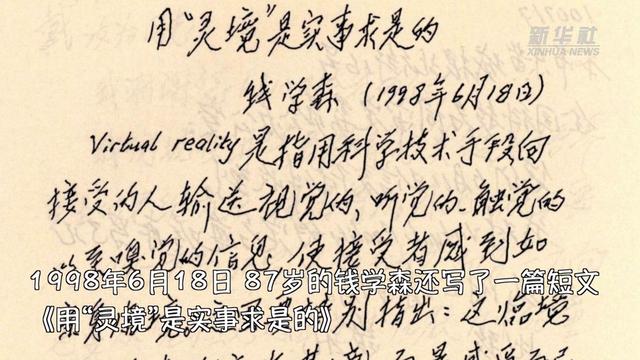 用“灵境”是实事求是的
新华社
XINHUA NEWS
钱学森（1998年6月18日）
Virtual reality是指用科学技术手段向
接受的人输送视觉的、听觉的、触觉的
至嗅觉的信息，使接受者感到如
1998年6月18日 87岁的钱学森还写了一篇短文
《用“灵境”是实事求是的》
指出：这临境